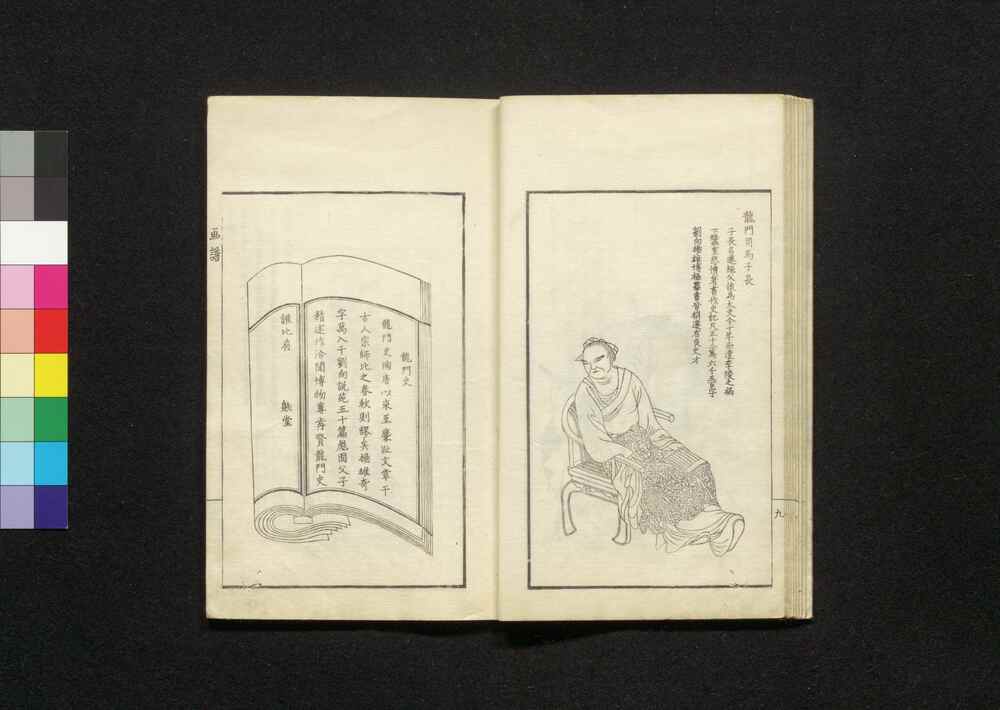 龍門司馬子長
子長名遷繼父談為太史令十年而遭李陵之禍
下蠶室悲憤著書作史記凡五十二萬六千五百字
劉向揚雄博極羣書皆稱遷有良史才
九
龍門史
龍門史陶唐以來至麟趾文章千
古人宗師比之春秋則謬矣揚雄奇
字萬八千劉向說苑五十篇彪固父子
精述作洽聞博物賢龍門史
誰比肩
堂
画譜